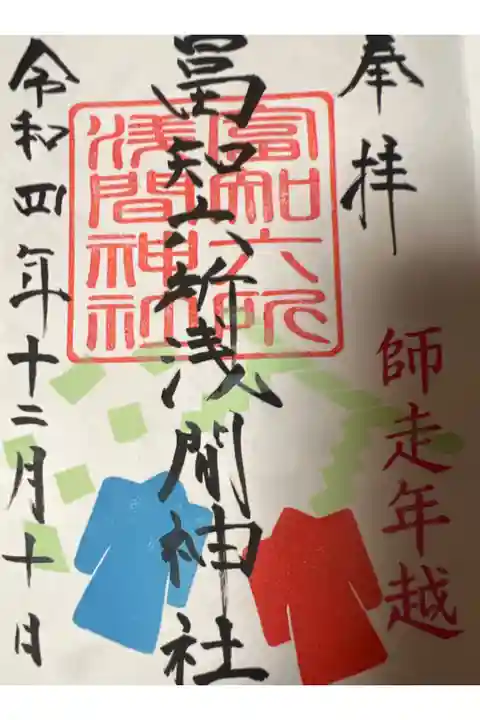 奉拝
師走年越
冨知六所浅間神社
冨知六所
浅間神社
令和四年十二月十日